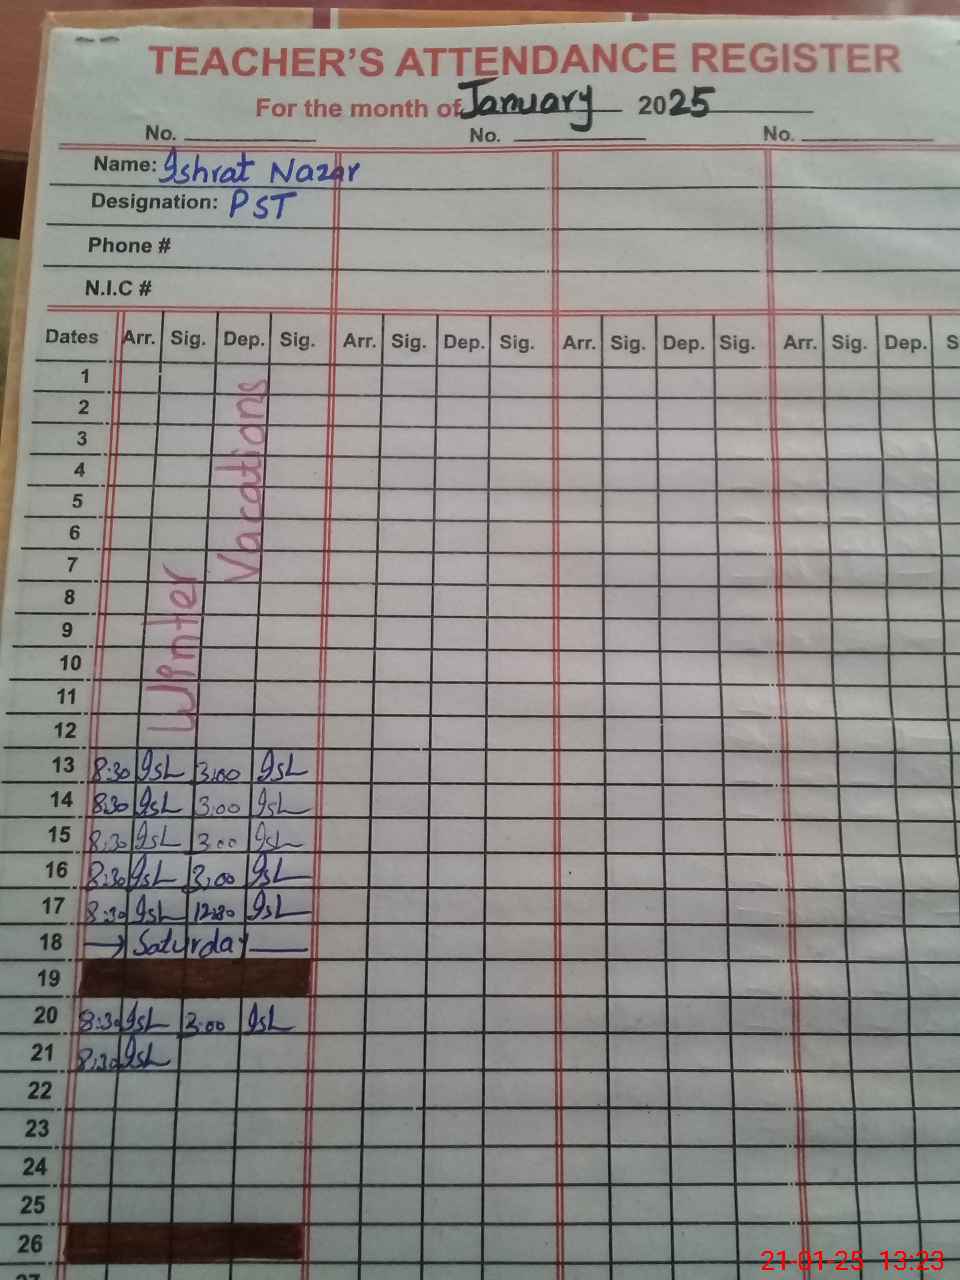 TEACHER'S ATTENDANCE REGISTER
For the month of January 2025
No. No. No.
Name: Ishrat Nazar
Designation: PST
Phone #
N.I.C #
Dates Arr. Sig. Dep. Sig. Arr. Sig. Dep. Sig. Arr. Sig. Dep. Sig. Arr. Sig. Dep. S
1
2
3
4
5
6
7
8
9
10
11
12
Winter Vacations
13 8:30 IsL 3:00 IsL
14 8:30 IsL 3:00 IsL
15 8:30 IsL 3:00 IsL
16 8:30 IsL 3:00 IsL
17 8:30 IsL 12:30 IsL
18 Saturday
19
20 8:30 IsL 3:00 IsL
21 8:30 IsL
22
23
24
25
26
27
21-01-25 13:23